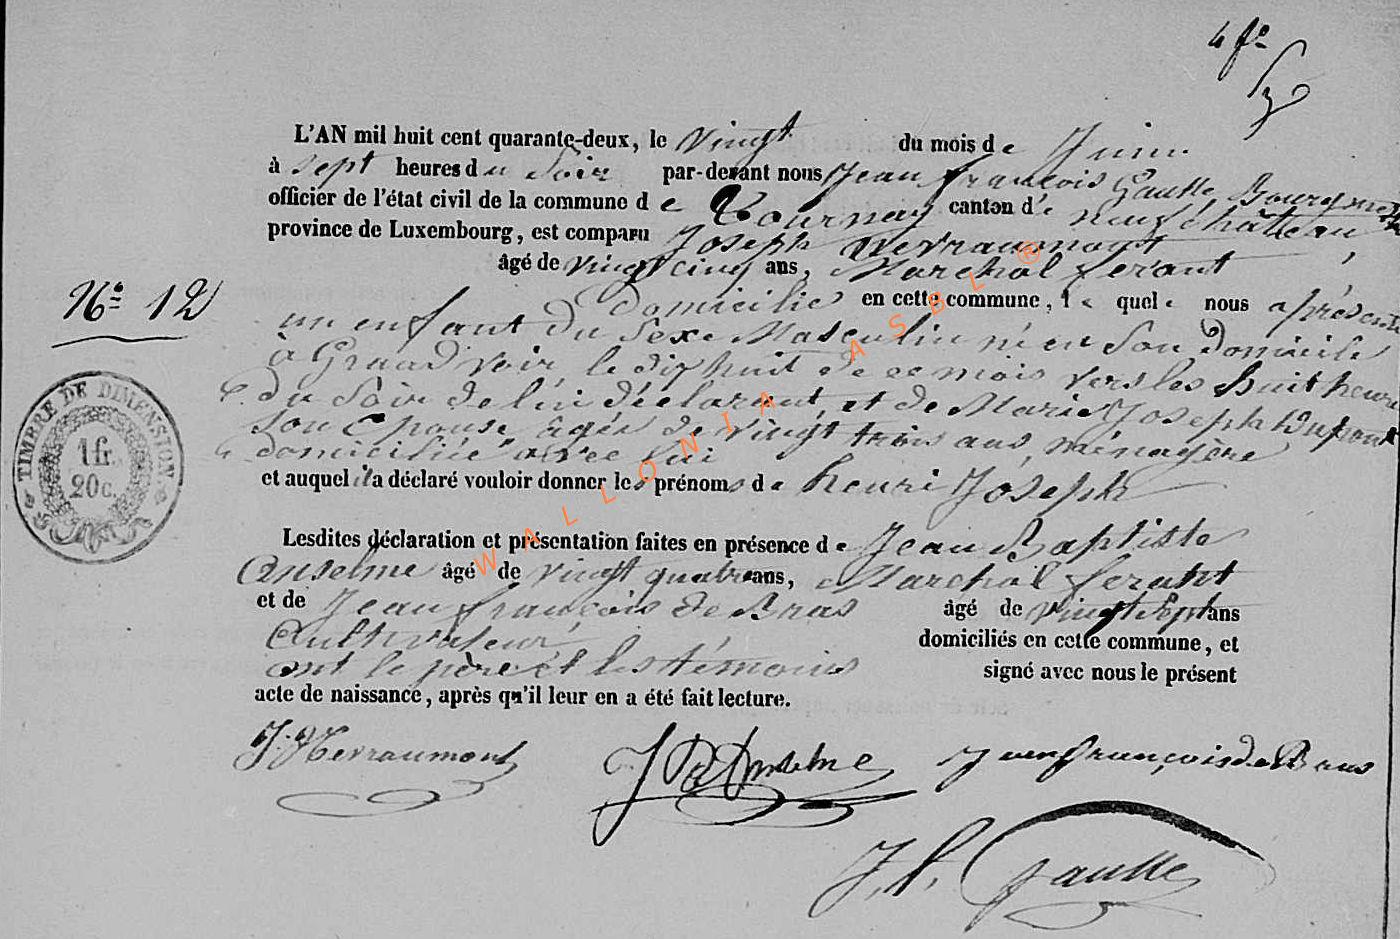 4 fo
L'AN mil huit cent quarante-deux, le vingt du mois de Juin.
à sept heures du Soir par-devant nous Jean françois Gaulle Bourgmestre
officier de l'état civil de la commune de Tournay canton de neufchâteau,
province de Luxembourg, est comparu Joseph Nevraumont
âgé de vingt cinq ans, Marchal ferant
N° 12
domicilié en cette commune, le quel nous a présenté
un enfant du Sexe Masculin né en Son domicile
à Grand voir le dix huit de ce mois vers les huit heures
du Soir de lui déclarant, et de Marie Joseph Dupont
Son Epouse âgée de vingt trois ans, ménagère
domiciliée avec lui
et auquel il a déclaré vouloir donner les prénoms de henri Joseph
TIMBRE DE DIMENSION.
1 fr.
20 c.
Lesdites déclaration et présentation faites en présence de Jean Baptiste
Anselme âgé de vingt quatre ans, Marchal ferant
et de Jean françois de Bras âgé de vingt sept ans
Cultivateur, domiciliés en cette commune, et
ont le père et les témoins signé avec nous le présent
acte de naissance, après qu'il leur en a été fait lecture.
J. Nevraumont JB Anselme Jean françois de Bras
J. f. Gaulle
WALLONIA ASBL ®